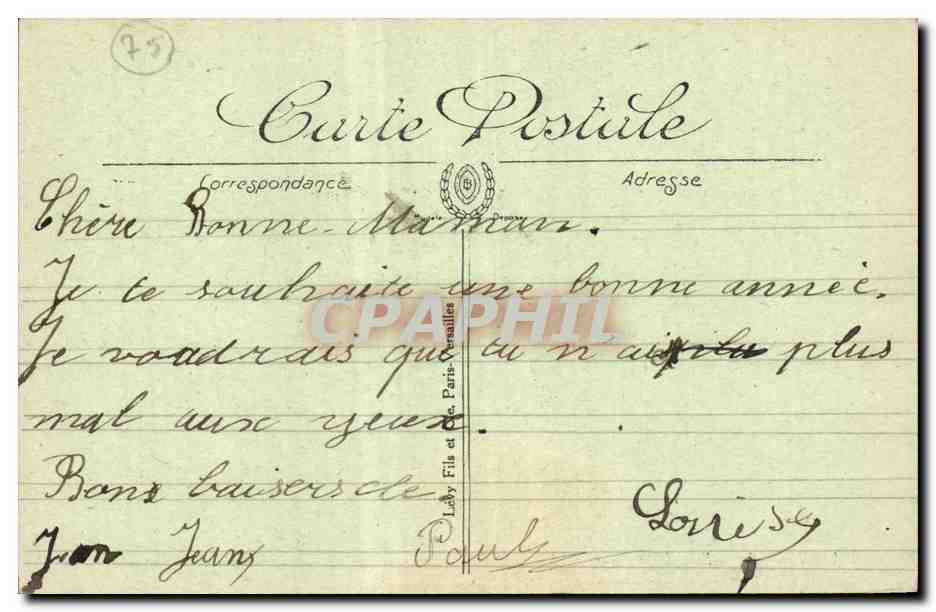 75
Carte Postale
Correspondance
Adresse
Modèle Déposé
Chère Bonne-Maman.
Je te souhaite une bonne année.
Je voudrais que tu n'aies plus
mal aux yeux.
Bons baisers de
Jean Jeans Paul Louise
Lévy Fils et Cie, Paris-Versailles
CPAPHIL